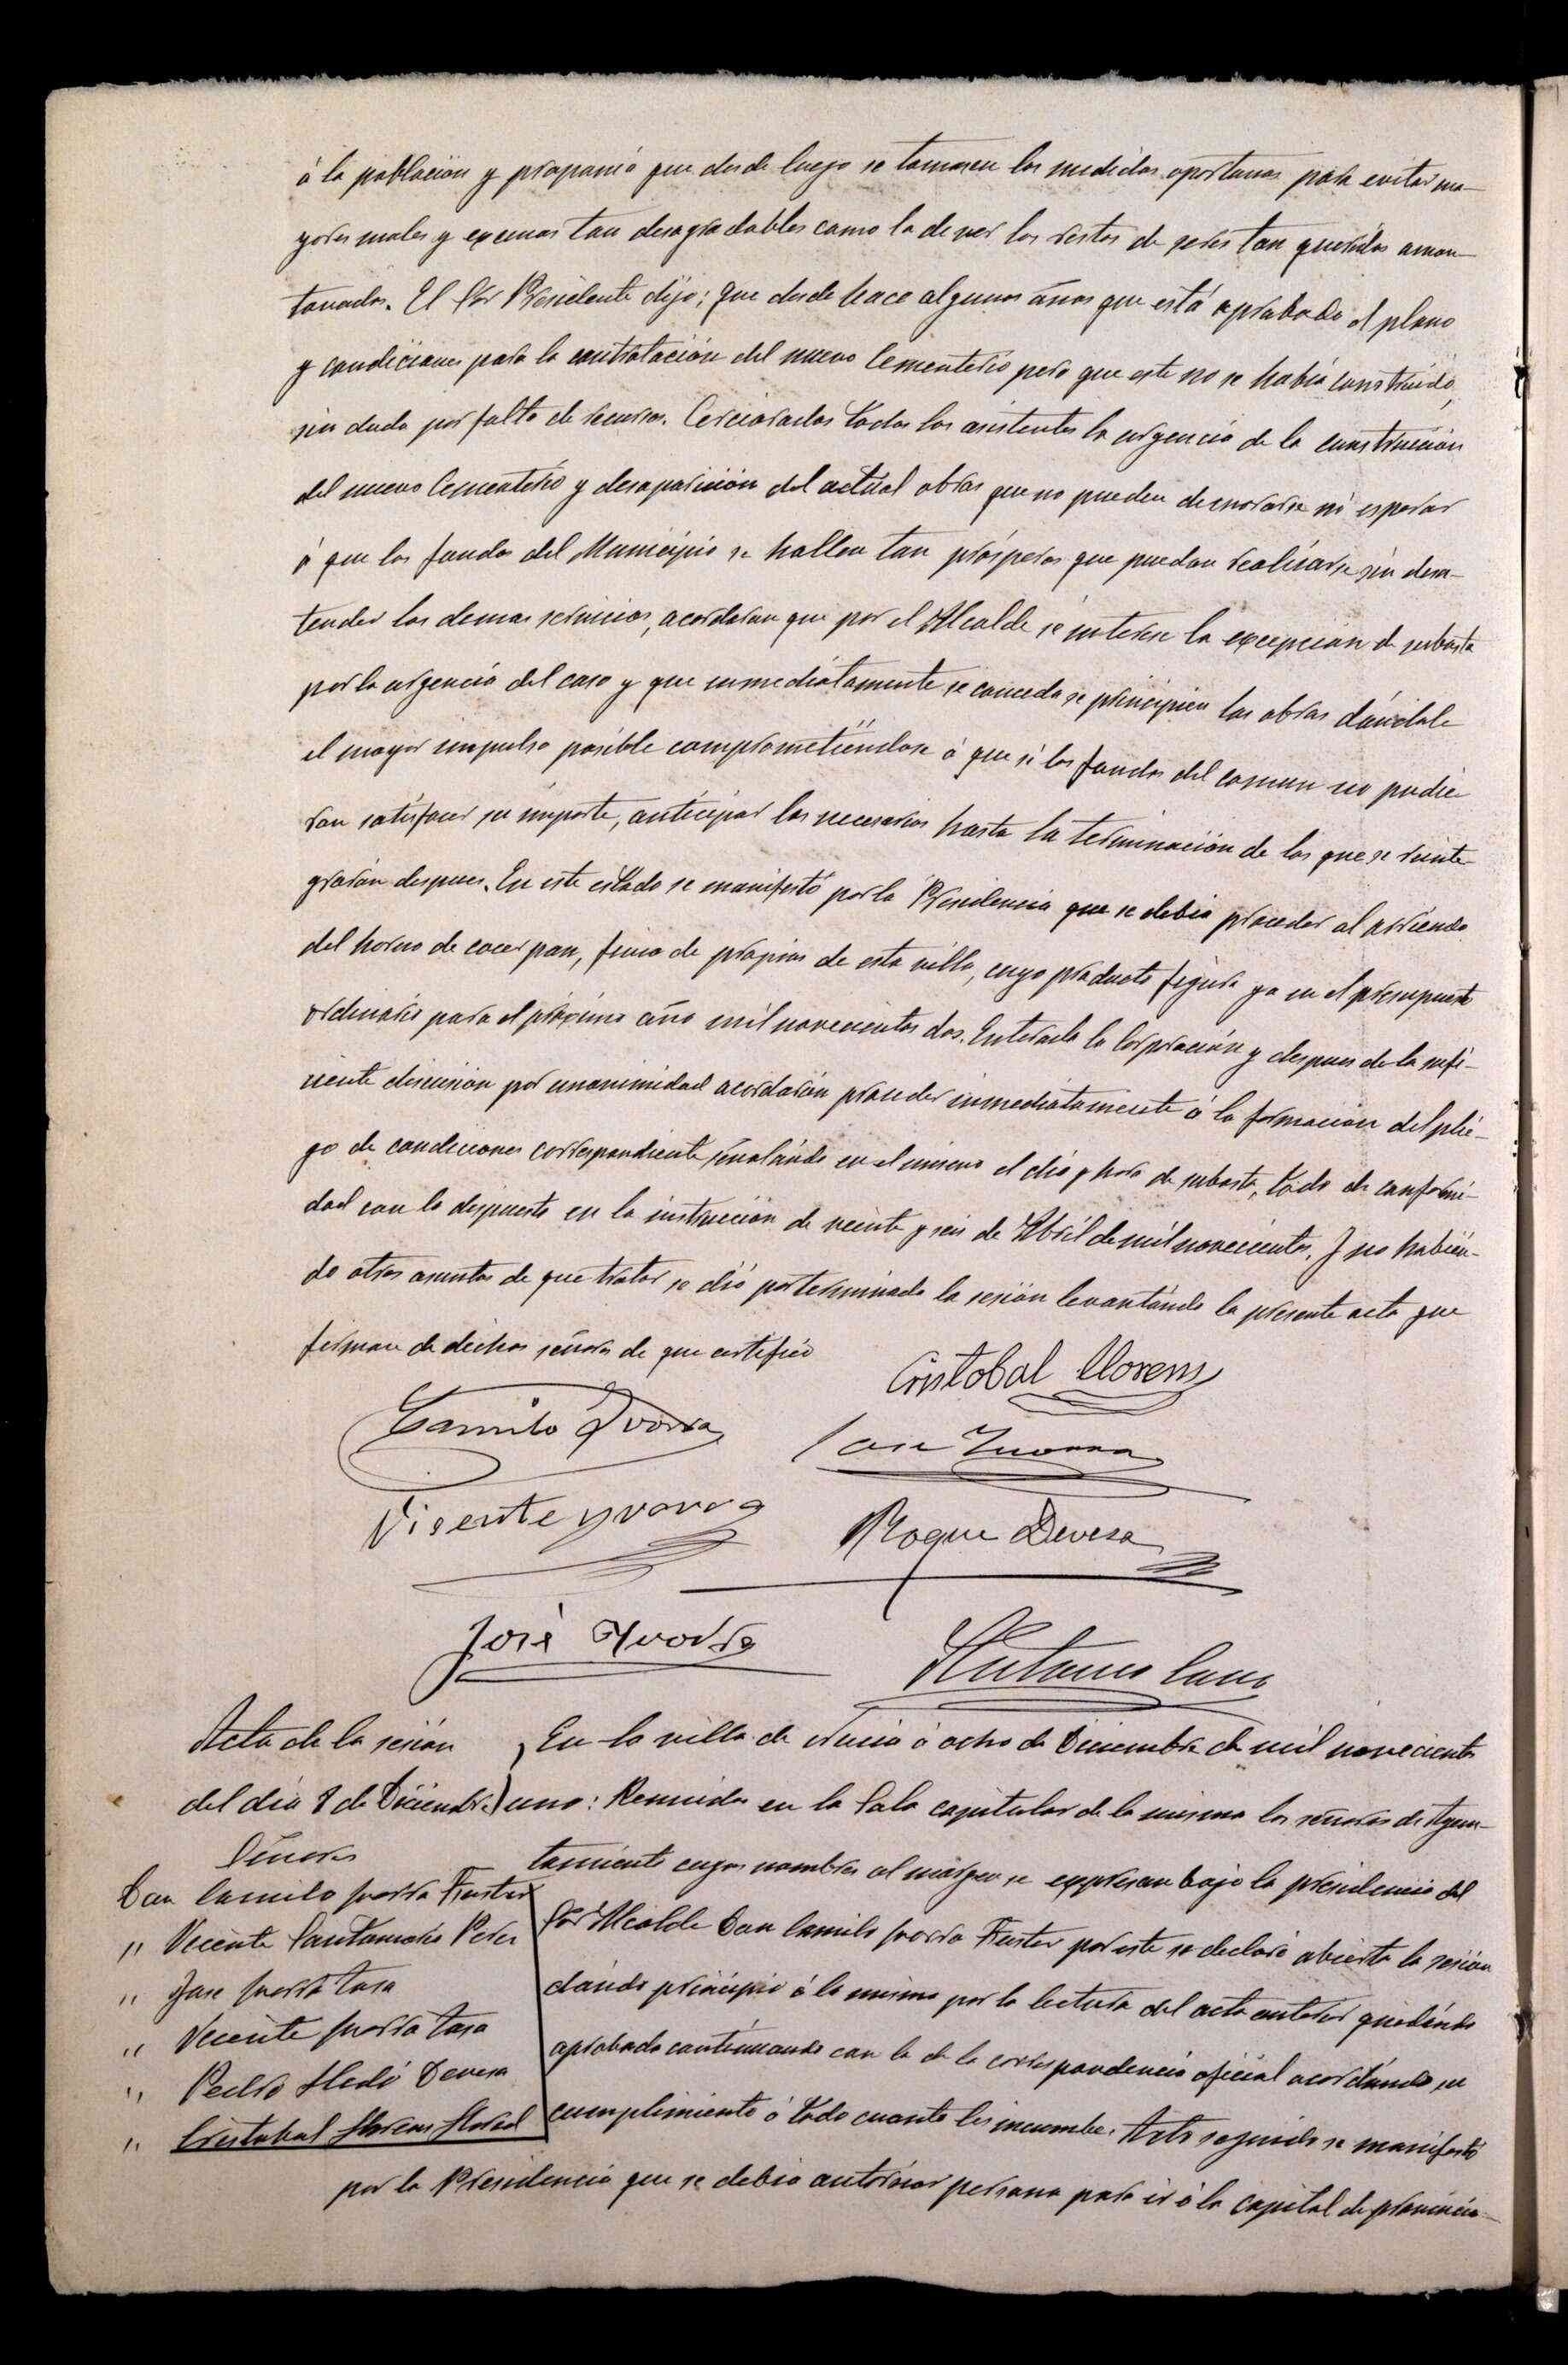 á la población y propónia que desde luego se tomasen las medidas oportunas para evitar ma-
yores males y escenas tan desagradables como la de ver los restos de seres tan queridos amon-
tonados. El Sor Presidente dijo; que desde hace algunos años que está aprobado el plano
y condiciones para la contratación del nuevo Cementerio pero que este no se habia construido,
sin duda por falta de recursos. Cerciorados todos los asistentes la urgencia de la construcción
del nuevo Cementerio y desaparición del actual obras que no pueden demorarse ni esperar
á que los fondos del Municipio se hallen tan prósperos que puedan realizarse sin desa-
tender los demas servicios, acordaron que por el Alcalde se interese la excepción de subasta
por la urgencia del caso y que inmediatamente se conceda se principien las obras dándole
el mayor impulso posible comprometiéndose á que si los fondos del comun no pudie
ran satisfacer su importe, anticipar los necesarios hasta la terminación de los que se reinte-
grarán despues. En este estado se manifestó por la Presidencia que se debia proceder al arriendo
del horno de cocer pan, finca de propios de esta villa, cuyo producto figura ya en el presupuesto
ordinario para el próximo año mil novecientos dos. Enterada la Corporación y despues de la sufi-
ciente discusión por unanimidad acordarón proceder inmediatamente á la formacion del plie-
go de condiciones correspondiente señalándo en el mismo el dia y hora de subasta, todo de conformi-
dad con lo dispuesto en la instrucción de veinte y seis de Abril de mil novecientos. Y no habien-
do otros asuntos de que tratar se dió por terminada la sesión levantándo la presente acta que
firman de dichos señores de que certifico
Cristobal Llorens
Camilo Yvorra
Jose Yvorra
Vicente yvorra
Roque Devesa
José Yvorra
Antonio Cano
Acta de la sesión
del dia 8 de Diciembre
Señores
Don Camilo Yvorra Fuster
" Vicente Santamaria Perez
" Jose Yvorra Lasa
" Vicente Yvorra Lasa
" Pedro Lledó Devesa
" Cristobal Llorens Llorens
En la villa de Nucia á ocho de Diciembre de mil novecientos
uno: Reunidos en la Sala capitular de la misma los señores de Ayun-
tamiento cuyos nombres al márgen se expresan bajo la presidencia del
Sor Alcalde Don Camilo Yvorra Fuster por este se declaró abierta la sesión
dándo principio á la misma por la lectura del acta anterior quedándo
aprobada continuando con la de la correspondencia oficial acordándo su
cumplimiento á todo cuanto les incumbe. Acto seguido se manifestó
por la Presidencia que se debia autorizar persona para ir á la capital de provincia